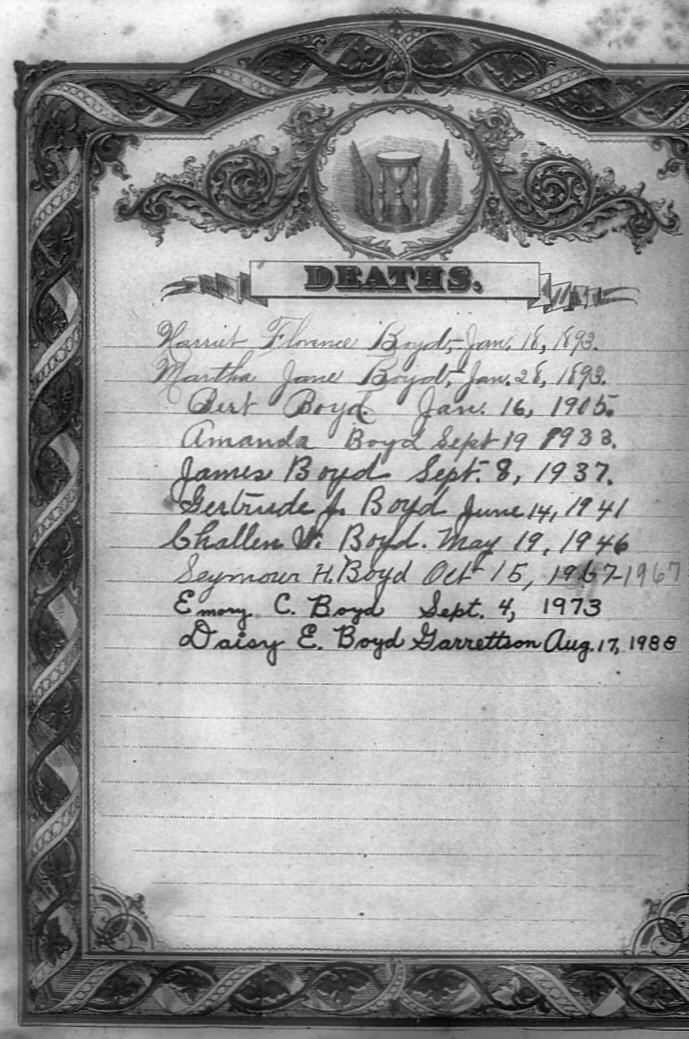 DEATHS.
Harriet Florence Boyd, Jan. 18, 1893.
Martha Jane Boyd, Jan. 28, 1893.
Bert Boyd. Jan. 16, 1905.
Amanda Boyd Sept 19 1933.
James Boyd Sept. 8, 1937.
Gertrude J. Boyd June 14, 1941
Challen V. Boyd. May 19, 1946
Seymour H. Boyd Oct 15, 1967-1967
Emory C. Boyd Sept. 4, 1973
Daisy E. Boyd Garrettson Aug. 17, 1988